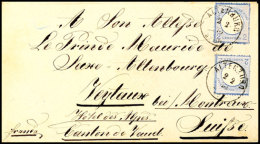 A Son Altesse
Le Prince Maurice de
Saxe-Altenbourg
Veytaux
bei Montreux
Hôtel des Alpes
Canton de Vaud
Suisse
franco
ALTENBURG
ALTENBURG